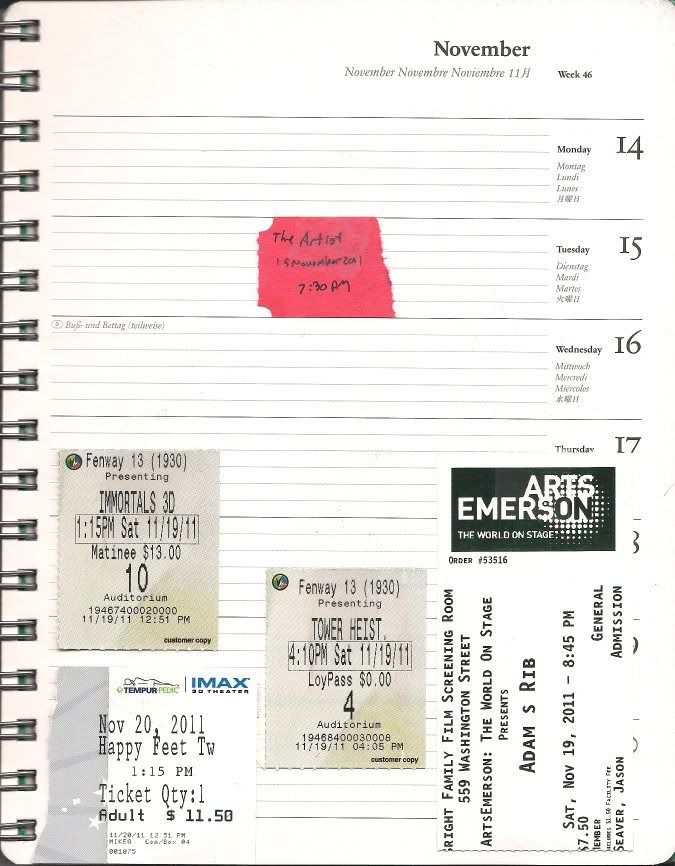 November
November Novembre Noviembre 11月
Week 46
Monday 14
Montag
Lundi
Lunes
月曜日
Tuesday 15
Dienstag
Mardi
Martes
火曜日
The Artist
15 November 2011
7:30 PM
Ⓓ Buß- und Bettag (teilweise)
Wednesday 16
Mittwoch
Mercredi
Miércoles
水曜日
Thursday 17
Fenway 13 (1930)
Presenting
IMMORTALS 3D
1:15PM Sat 11/19/11
Matinee $13.00
10
Auditorium
19467400020000
11/19/11 12:51 PM
customer copy
Fenway 13 (1930)
Presenting
TOWER HEIST.
4:10PM Sat 11/19/11
LoyPass $0.00
4
Auditorium
19468400030008
11/19/11 04:05 PM
customer copy
ARTS
EMERSON
THE WORLD ON STAGE
ORDER #53516
RIGHT FAMILY FILM SCREENING ROOM
559 WASHINGTON STREET
ARTSEMERSON: THE WORLD ON STAGE
PRESENTS
ADAM S RIB
SAT, NOV 19, 2011 - 8:45 PM
7.50
GENERAL
ADMISSION
EMBER
INCLUDES $1.50 FACILITY FEE
SEAVER, JASON
TEMPUR-PEDIC
IMAX
3D THEATER
Nov 20, 2011
Happy Feet Tw
1:15 PM
Ticket Qty:1
Adult $ 11.50
11/20/11 12:51 PM
MIKEG Com/Box 04
001075